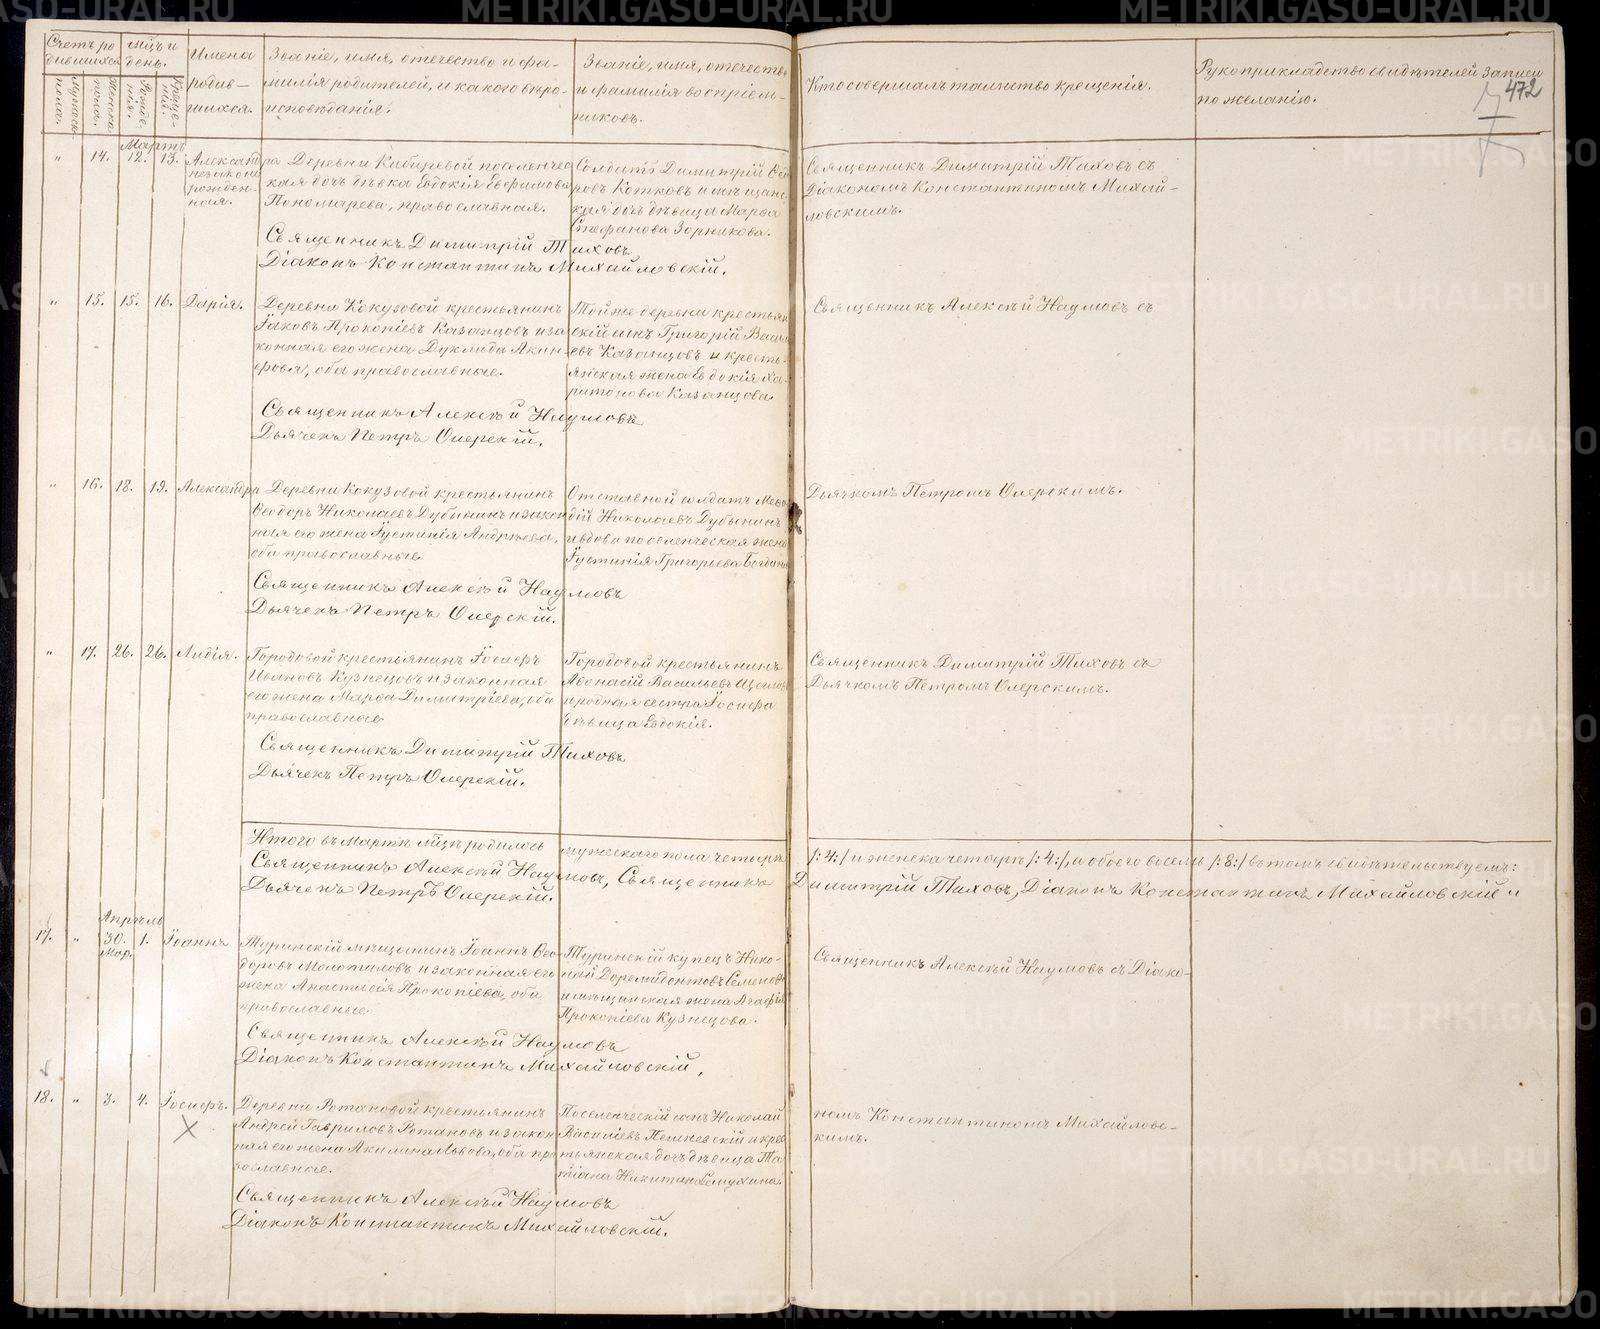 Счетъ ро
дившихся
мц̃ъ и
день.
Мужеска
пола.
Женска
пола.
Рожде-
нія.
Креще-
нія.
Имена
родив-
шихся.
Званіе, имя, отечество и фа-
милія родителей, и какого вѣро-
исповѣданія.
Званіе, имя, отечество
и фамилія воспріем-
никовъ.
Кто совершалъ таинство крещенія.
Рукоприкладство свидѣтелей записи
по желанію.
472
Мартъ
" 14. 12. 13. Александра
незаконно
рожден-
ная.
Деревни Кибиревой поселенчес
кая дочь дѣвка Евдокія Евфимова
Пономарева, православная.
Солдатъ Димитрій Ѳео
ровъ Котковъ и мѣщанс
кая дочь дѣвица Марѳа
Стефанова Зорникова.
Священникъ Димитрій Тиховъ съ
Діакономъ Константиномъ Михай-
ловскимъ.
Священникъ Димитрій Тиховъ
Діаконъ Константинъ Михайловскій.
" 15. 15. 16. Дарія.
Деревни Кокузовой крестьянинъ
Іаковъ Прокопіевъ Казанцовъ и за
конная его жена Дуклида Акин-
фова, оба православные.
Той же деревни крестьян
скій сынъ Григорій Васил
евъ Казанцовъ и кресть-
янская жена Евдокія Ха-
ритонова Казанцова.
Священникъ Алексѣй Наумовъ съ
Священникъ Алексѣй Наумовъ
Дьячекъ Петръ Олерскій.
" 16. 18. 19. Александра
Деревни Кокузовой крестьянинъ
Ѳеодоръ Николаевъ Дубынинъ и закон
ная его жена Іустинія Андреева,
оба православные.
Отставной солдатъ Меѳо
дій Николаевъ Дубынинъ
и вдова поселенческая жена
Іустинія Григорьева Богдано
Дьячкомъ Петромъ Олерскимъ.
Священникъ Алексѣй Наумовъ
Дьячекъ Петръ Олерскій.
" 17. 26. 26. Лидія.
Городовой крестьянинъ Іосифъ
Ивановъ Кузнецовъ и законная
его жена Марѳа Димитріева, оба
православные.
Городовой крестьянинъ
Аѳонасій Васильевъ Щегловъ
и родная сестра Іосифа
дѣвица Евдокія.
Священникъ Димитрій Тиховъ съ
Дьячкомъ Петромъ Олерскимъ.
Священникъ Димитрій Тиховъ
Дьячекъ Петръ Олерскій.
Итого въ мартѣ мц̃ѣ родилось мужескаго пола четыре /:4:/ и женска четыре /:4:/, а обоего восемь /:8:/ въ томъ свидѣтельствуемъ:
Священникъ Алексѣй Наумовъ, Священникъ Димитрій Тиховъ, Діаконъ Константинъ Михайловскій и
Дьячекъ Петръ Олерскій.
Апрѣль
17. " 30. 1. Іоаннъ
Мар.
Туринскій мѣщанинъ Іоаннъ Ѳео-
доровъ Молотиловъ и законная его
жена Анастасія Прокопіева, оба
православные.
Туринскій купецъ Нико-
лай Доремидонтовъ Семеновъ
и мѣщанская жена Агафія
Прокопіева Кузнецова.
Священникъ Алексѣй Наумовъ съ Діако-
Священникъ Алексѣй Наумовъ
Діаконъ Константинъ Михайловскій.
18. " 3. 4. Іосифъ.
Деревни Ротановой крестьянинъ
Андрей Гавриловъ Ротановъ и закон
ная его жена Акилина Львова, оба пра
вославные.
Поселенческій сынъ Николай
Василіевъ и крес
тьянская дочь дѣвица Та
тіана Никитина
номъ Константиномъ Михайловс-
кимъ.
Священникъ Алексѣй Наумовъ
Діаконъ Константинъ Михайловскій.
METRIKI.GASO-URAL.RU